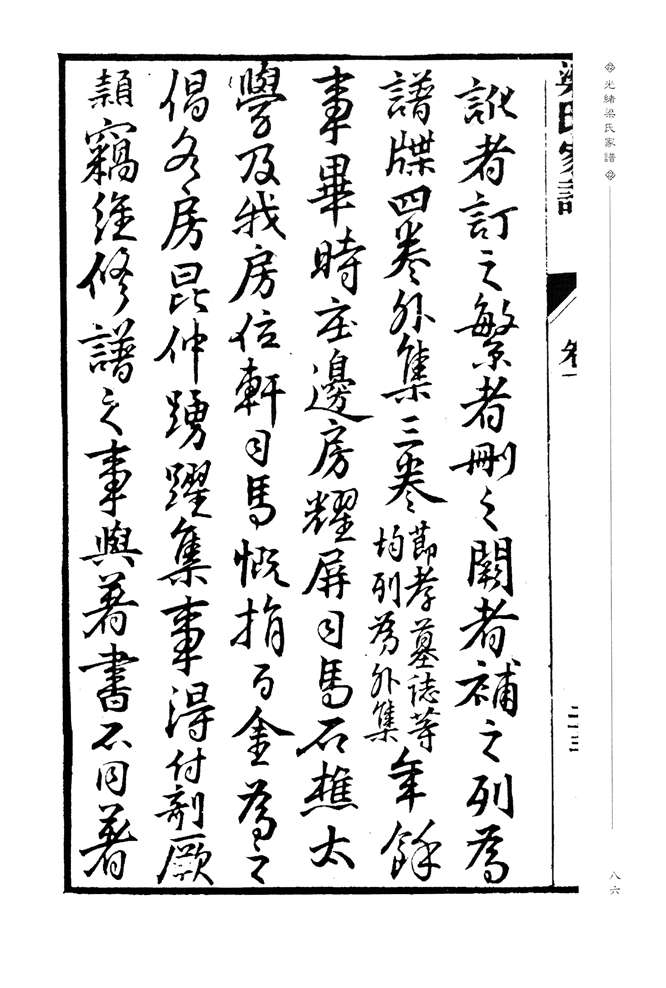 訛者訂之繁者刪之闕者補之列為
譜牒四卷外集三卷
節孝墓誌等
均列為外集
年餘
事畢時莊邊房耀屏司馬石樵太
學及我房位軒司馬慨捐百金為之
倡各房昆仲踴躍集事得付剞厥
竊維修譜之事與著書不同著
梁氏家譜
卷一
二十三
光緒梁氏家譜
八六